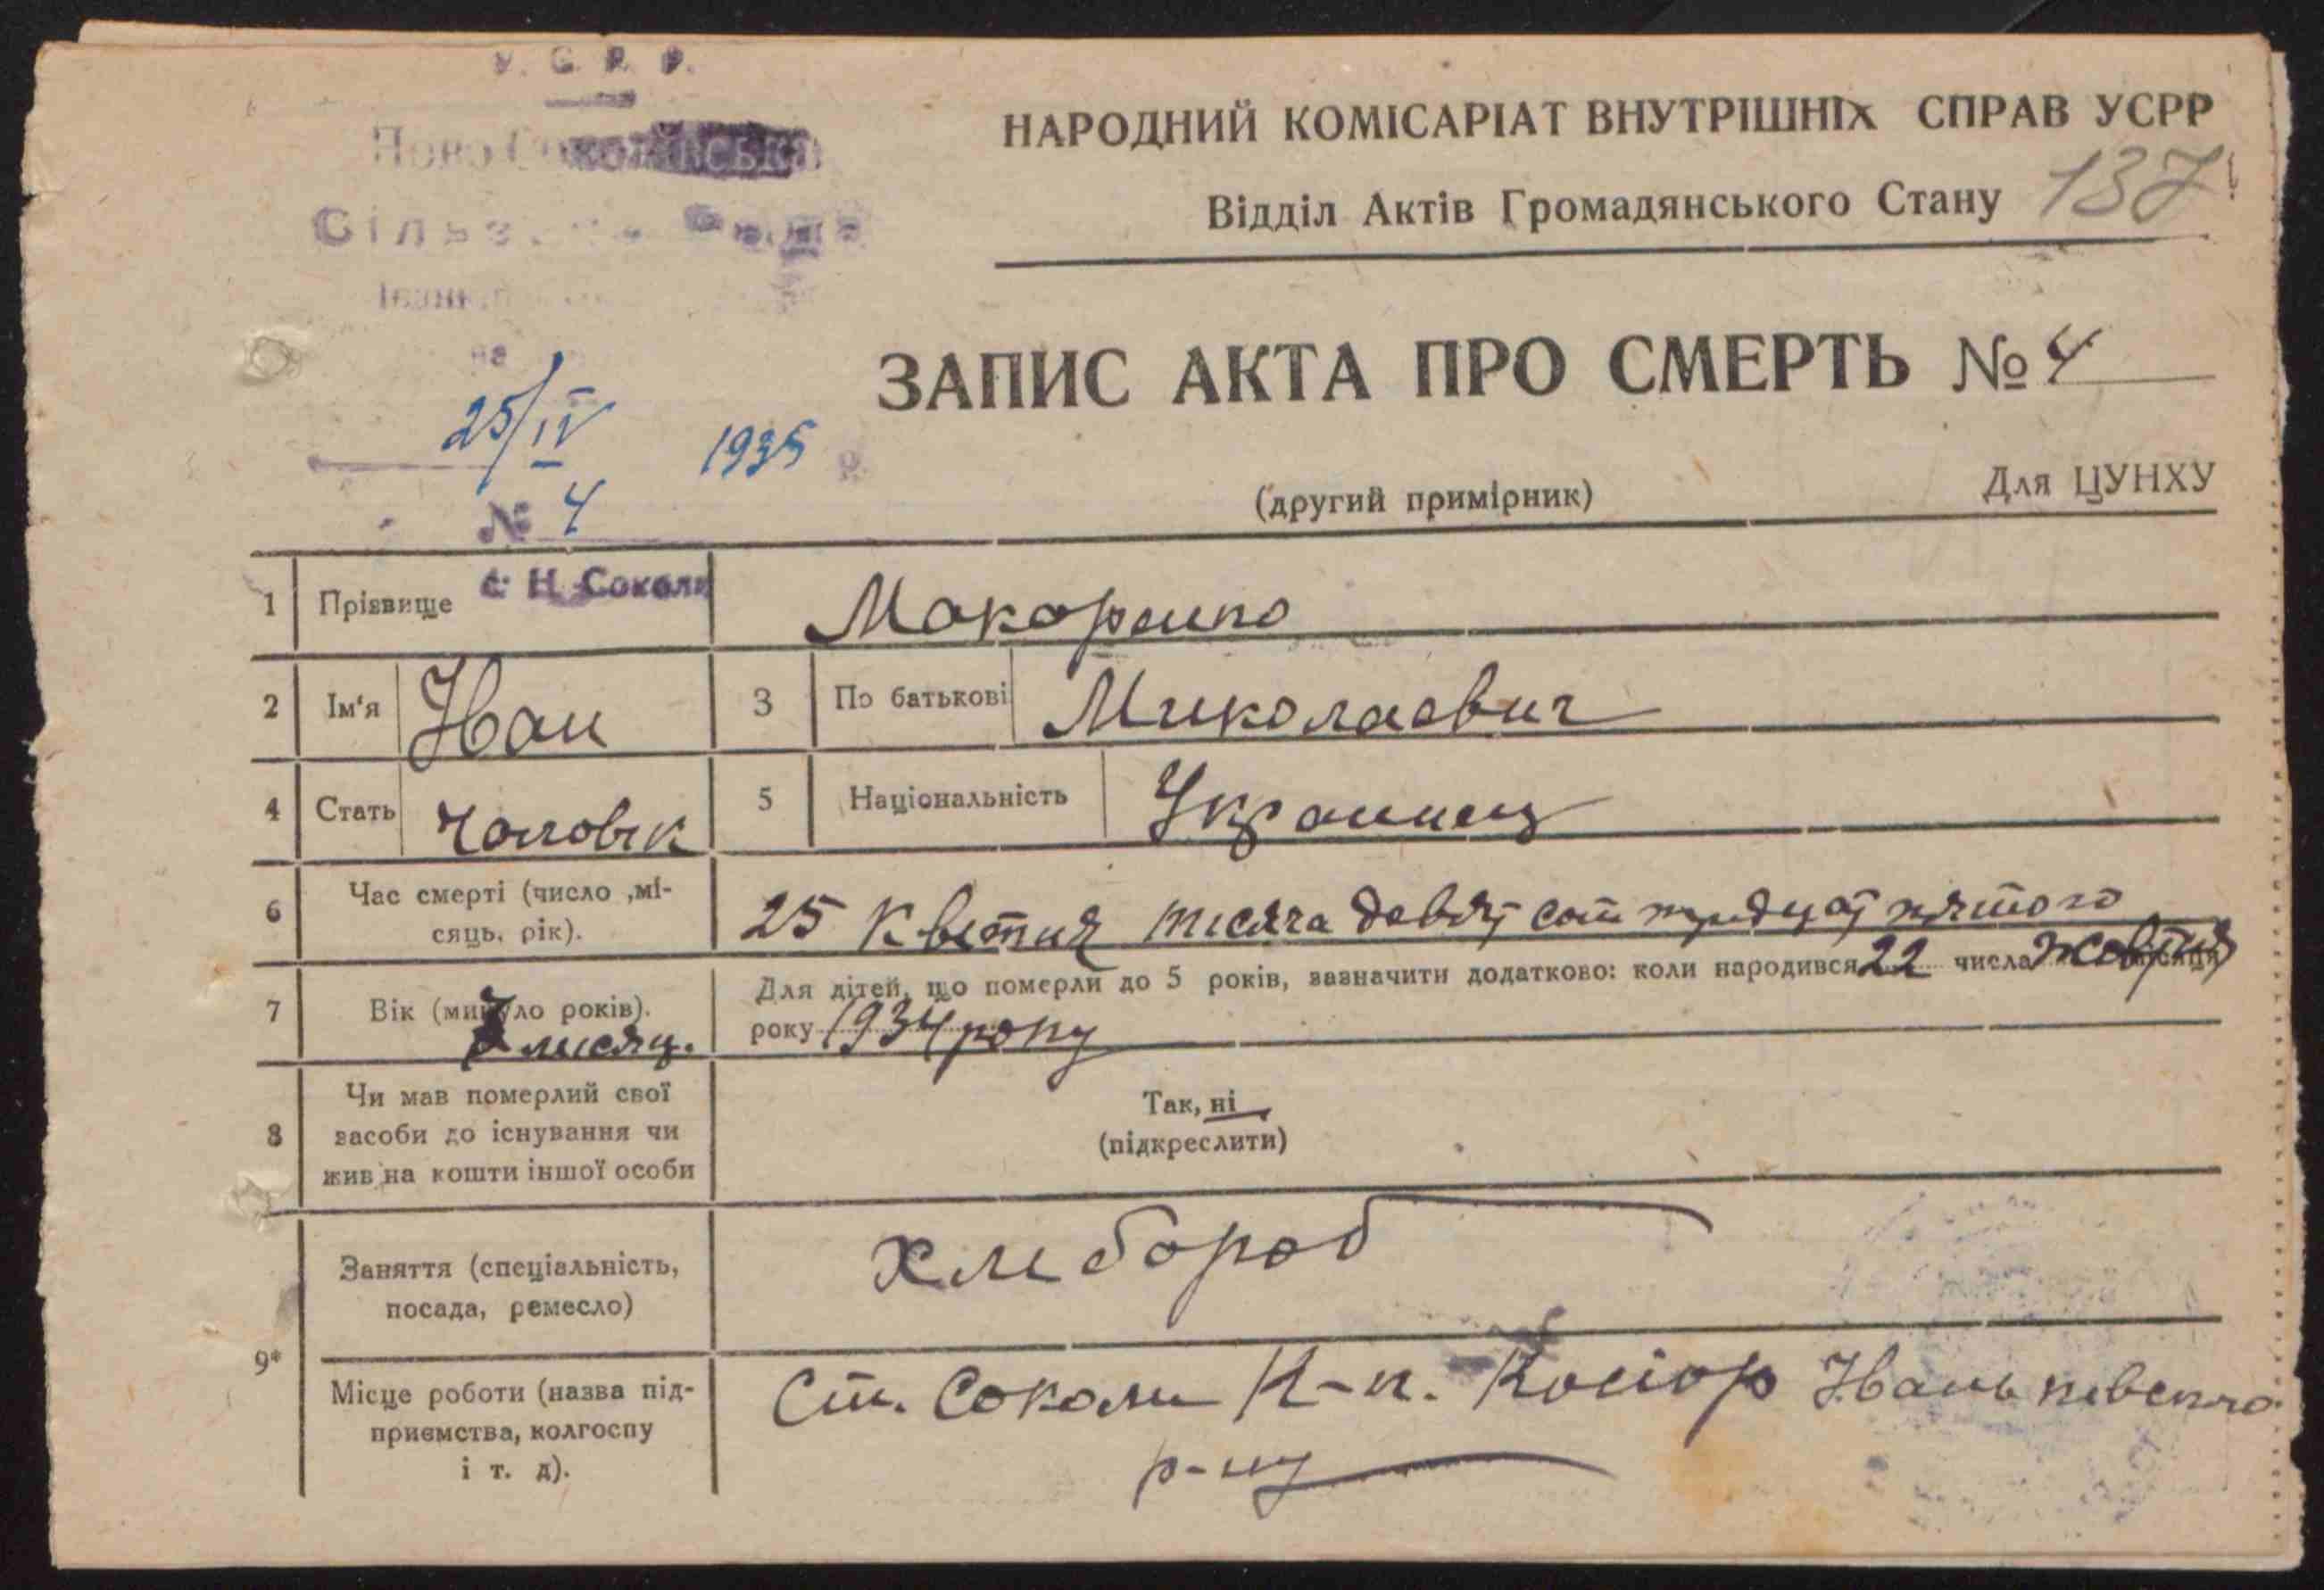 У. С. Р. Р.
Ново Соколівська
Сільська Рада
НАРОДНИЙ КОМІСАРІАТ ВНУТРІШНІХ СПРАВ УСРР
Відділ Актів Громадянського Стану 137
ЗАПИС АКТА ПРО СМЕРТЬ № 4
25/IV 1935 р.
№ 4
(другий примірник) Для ЦУНХУ
с. Н-Соколи
1 Прізвище Макоренко
2 Ім'я Иван 3 По батькові Миколаевич
4 Стать Чоловік 5 Національність Украинец
6 Час смерті (число ,мі-
сяць, рік).
25 Квітня тисяча девят сот тридцят пятого
7 Вік (минуло років).
місяц.
Для дітей, що померли до 5 років, зазначити додатково: коли народився 22 числа жовтня місяця
року 1934 року
8 Чи мав померлий свої
засоби до існування чи
жив на кошти іншої особи
Так, ні
(підкреслити)
9*
Заняття (спеціяльність,
посада, ремесло)
хлебороб
Місце роботи (назва під-
приємства, колгоспу
і т. д).
Ст. Соколи К-п. Косіор Иванкивского
р-ну